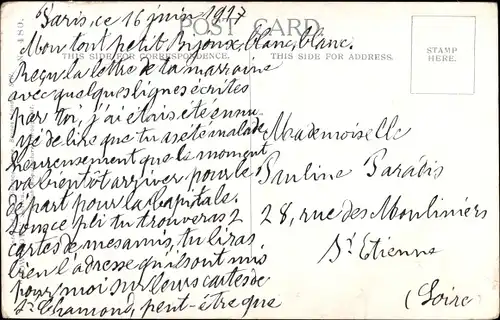 Paris, ce 16 juin 1917
POST CARD
Mon tout petit Byjoux, blanc, blanc.
THIS SIDE FOR CORRESPONDENCE.
THIS SIDE FOR ADDRESS.
STAMP
HERE.
Reçu la lettre de ta marraine
avec quelques lignes écrites
par toi, j'ai étais été ennu
yé de lire que tu as été malade
heureusement que le moment
va bientôt arriver pour le
départ pour la Capitale.
Sous ce pli tu trouveras 2
cartes de mes amis, tu liras
bien l'adresse qu'ils ont mis
pour moi sur leurs cartes de
St Chamond, peut-être que
Mademoiselle
Pauline Paradis
28, rue des Mouliniers
St Etienne
(Loire)